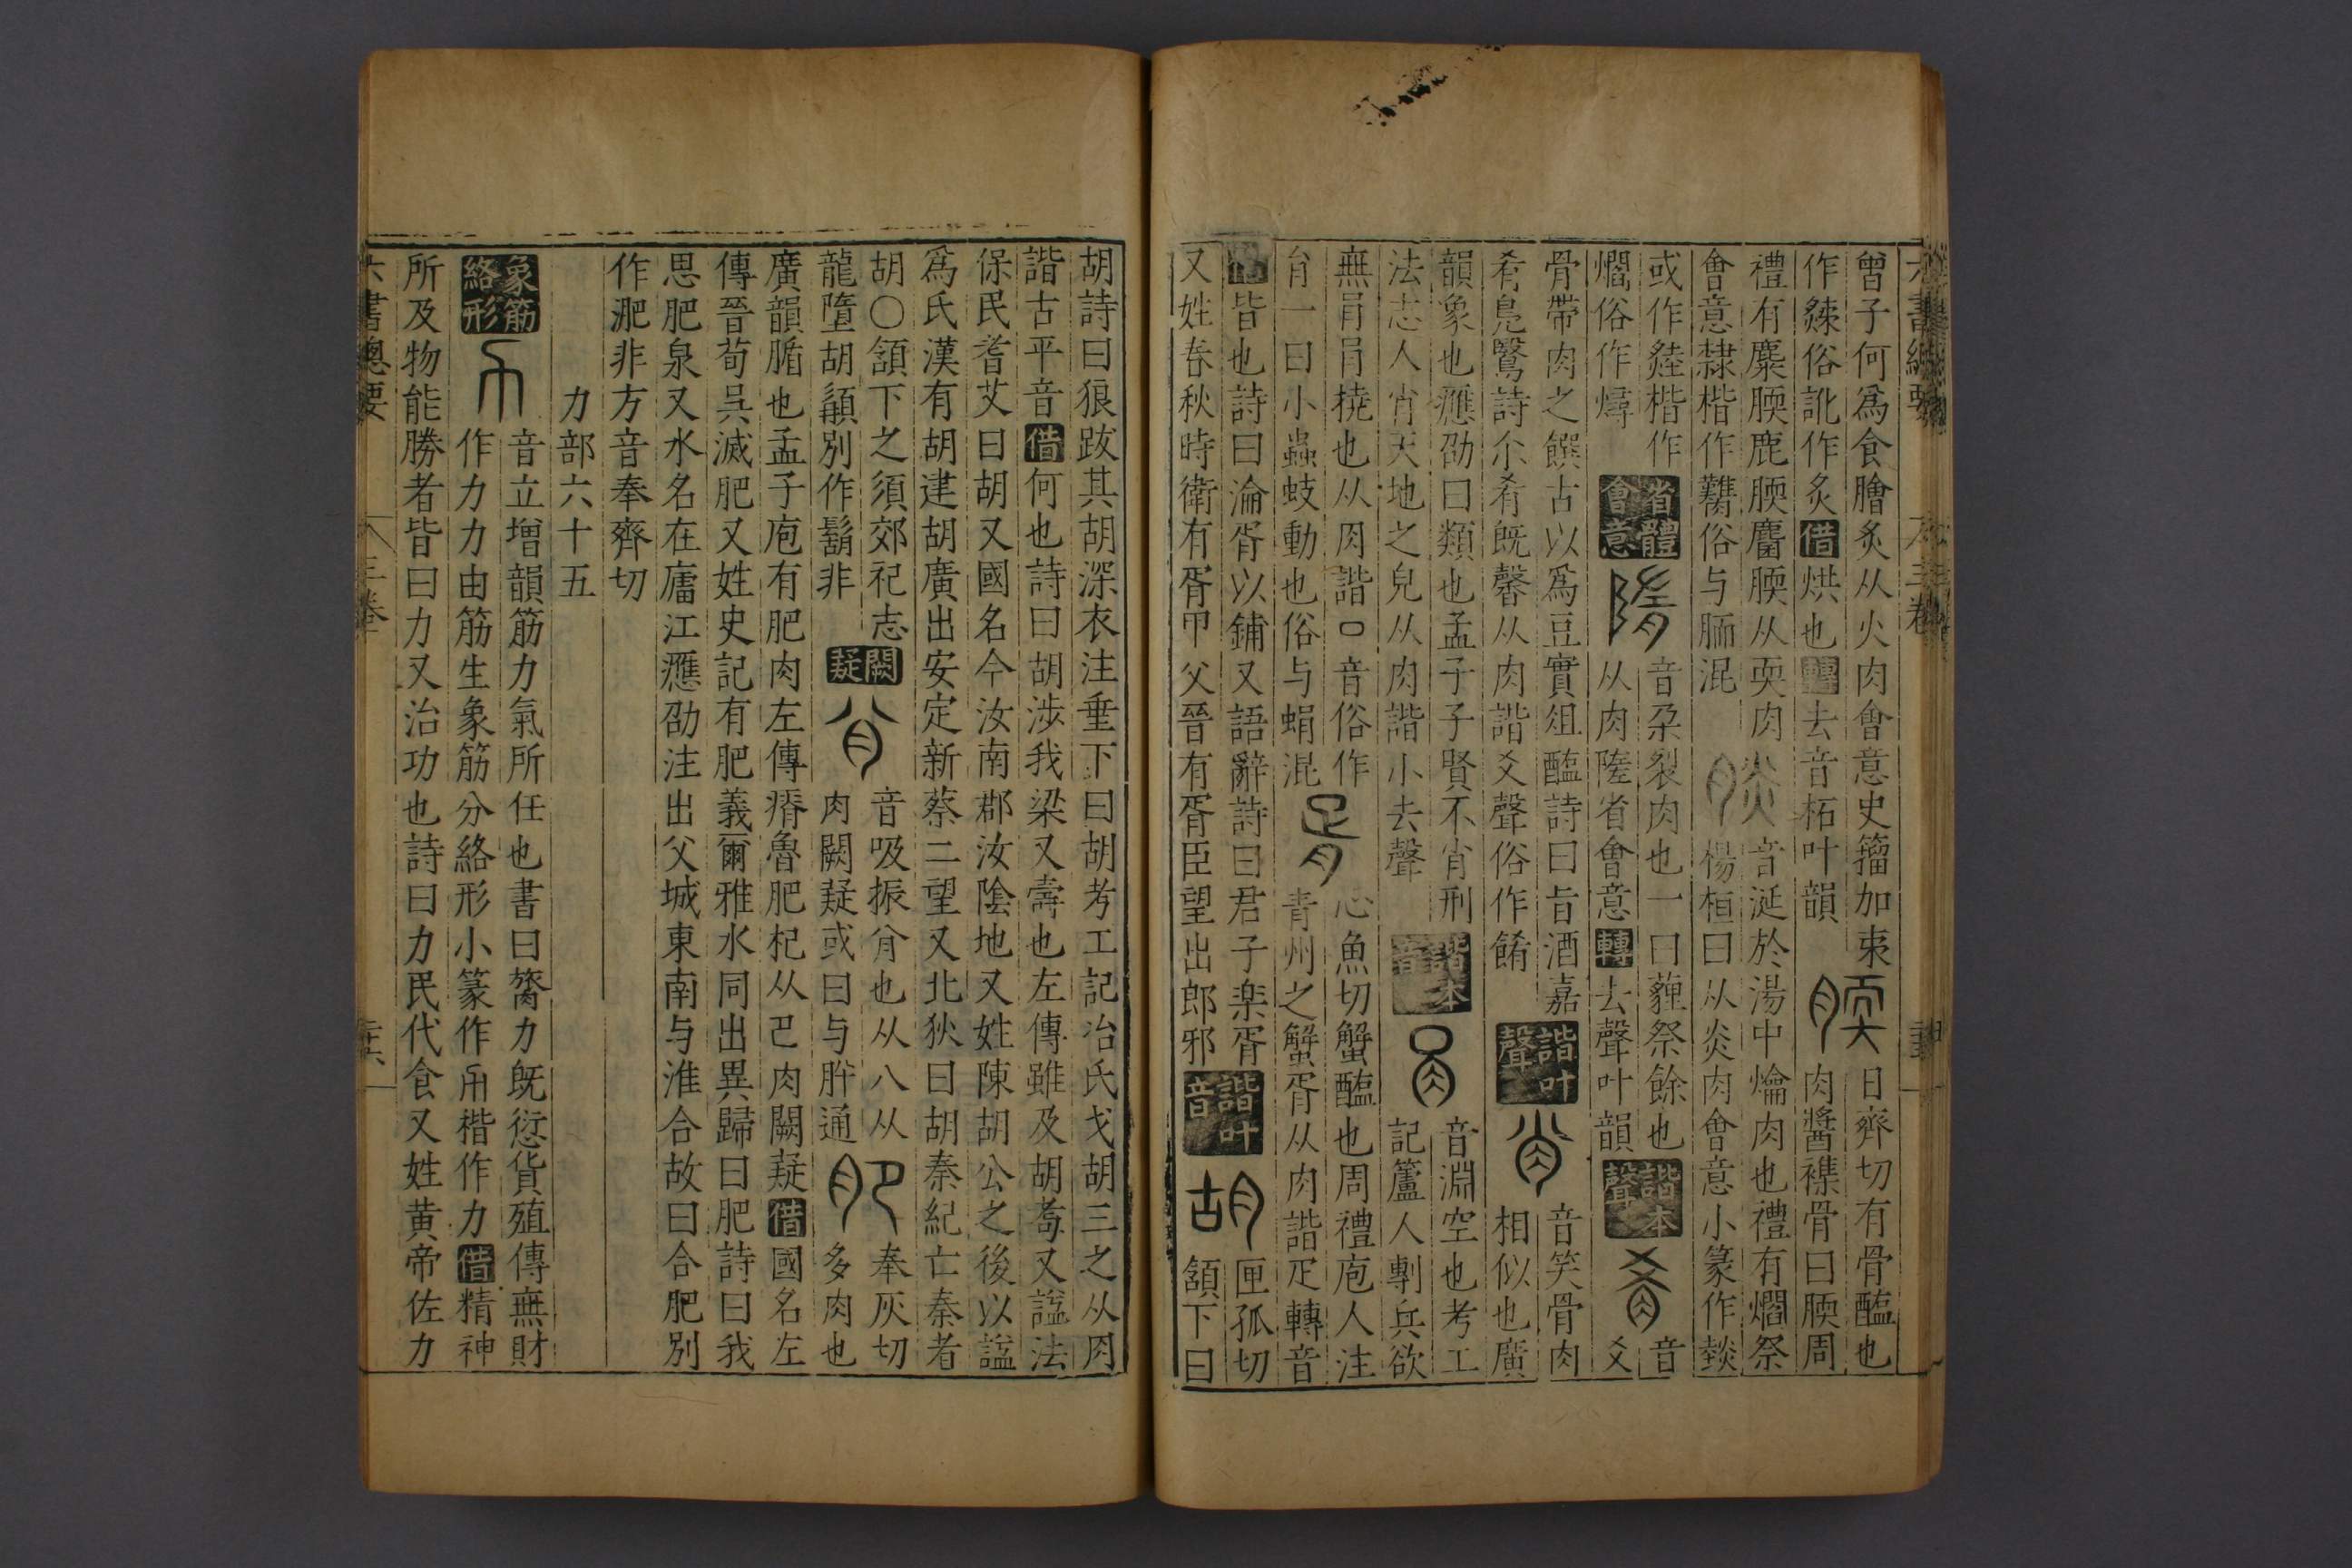 曾子何爲食膾炙从火肉會意史籀加束
作𤎬俗訛作炙借烘也轉去音柘叶韻
腝
日齊切有骨醢也
肉醬襍骨曰腝周
禮有麋腝鹿腝麕腝从耎肉
會意隸楷作臡俗与胹混
㷋
音涎於湯中爚肉也禮有爓祭
楊桓曰从炎肉會意小篆作㷋
或作𤊹楷作
爓俗作燖
省體會意
隋
音朶裂肉也一曰薶祭餘也
从肉隓省會意轉去聲叶韻
諧本聲
肴
音爻
骨帶肉之饌古以爲豆實俎醢詩曰旨酒嘉
肴鳧鷖詩尔肴既馨从肉諧爻聲俗作餚
諧叶聲
肖
音笑骨肉相似也廣
韻象也應劭曰類也孟子子賢不肖刑
法志人肖天地之皃从肉諧小去聲
諧本音
肙
音淵空也考工
記廬人剸兵欲
無肙肙橈也从肉諧口音俗作
肻一曰小蟲蚑動也俗与蜎混
胥
心魚切蟹醢也周禮庖人注
青州之蟹胥从肉諧疋轉音
借皆也詩曰淪胥以鋪又語辭詩曰君子楽胥
又姓春秋時衛有胥甲父晉有胥臣望出郎邪
諧叶音
胡
匣孤切
頷下曰
胡詩曰狼跋其胡深衣注垂下曰胡考工記冶氏戈胡三之从肉
諧古平音借何也詩曰胡渉我梁又壽也左傳雖及胡耇又諡法
保民耆艾曰胡又國名今汝南郡汝陰地又姓陳胡公之後以諡
爲氏漢有胡建胡廣出安定新蔡二望又北狄曰胡秦紀亡秦者
胡〇頷下之須郊祀志
龍墮胡䫇別作鬍非
闕疑
肸
音吸振肸也从八从
肉闕疑或曰与肸通
肥
奉灰切
多肉也
廣韻腯也孟子庖有肥肉左傳瘠魯肥杞从巴肉闕疑借國名左
傳晉荀吳滅肥又姓史記有肥義爾雅水同出異歸曰肥詩曰我
思肥泉又水名在廬江應劭注出父城東南与淮合故曰合肥別
作淝非方音奉齊切
力部六十五
象筋絡形
力
音立增韻筋力氣所任也書曰膂力既愆貨殖傳無財
作力力由筋生象筋分絡形小篆作𠠲楷作力借精神
所及物能勝者皆曰力又治功也詩曰力民代食又姓黄帝佐力
六書總要
三卷